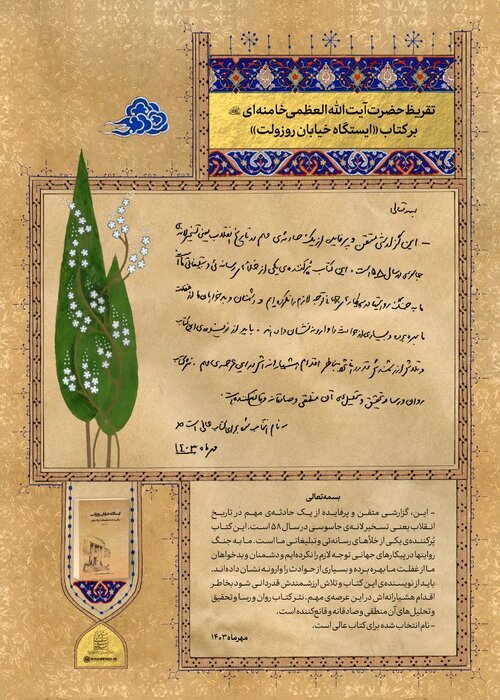 تقریظ حضرت آیت‌الله‌العظمی خامنه‌ای
بر کتاب «ایستگاه خیابان روزولت»
بسمه تعالی
- این گزارشی متقن و پرفایده از یک حادثه‌ی مهم در تاریخ انقلاب یعنی تسخیر لانه‌ی
جاسوسی در سال ۵۸ است. این کتاب پُرکننده‌ی یکی از خلأهای رسانه‌ئی و تبلیغاتی ما است.
ما به جنگ روایتها در پیکارهای جهانی توجه لازم را نکرده‌ایم و دشمنان و بدخواهان ما از غفلت
ما بهره برده و بسیاری از حوادث را وارونه نشان داده‌اند. باید از نویسنده‌ی این کتاب
و تلاش ارزشمندش قدردانی شود بخاطر اقدام هشیارانه‌اش در این عرصه‌ی مهم. نثر کتاب
روان و رسا و تحقیق و تحلیل‌های آن منطقی و صادقانه و قانع‌کننده است.
- نام انتخاب شده برای کتاب عالی است
مهرماه ۱۴۰۳
بسمه‌تعالی
- این، گزارشی متقن و پرفایده از یک حادثه‌ی مهم در تاریخ
انقلاب یعنی تسخیر لانه‌ی جاسوسی در سال ۵۸ است. این کتاب
پُرکننده‌ی یکی از خلأهای رسانه‌ئی و تبلیغاتی ما است. ما به جنگ
روایتها در پیکارهای جهانی توجه لازم را نکرده‌ایم و دشمنان و بدخواهان
ما از غفلت ما بهره برده و بسیاری از حوادث را وارونه نشان داده‌اند.
باید از نویسنده‌ی این کتاب و تلاش ارزشمندش قدردانی شود بخاطر
اقدام هشیارانه‌اش در این عرصه‌ی مهم. نثر کتاب روان و رسا و تحقیق
و تحلیل‌های آن منطقی و صادقانه و قانع‌کننده است.
- نام انتخاب شده برای کتاب عالی است.
مهرماه ۱۴۰۳
ایستگاه خیابان روزولت
KHAMENEI.IR